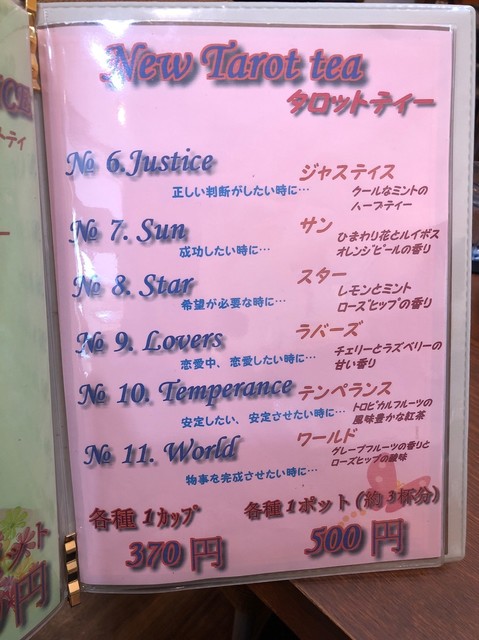 New Tarot tea
タロットティー
№ 6.Justice
ジャスティス
正しい判断がしたい時に…
クールなミントの
ハーブティー
№ 7. Sun
サン
成功したい時に…
ひまわり花とルイボス
オレンジピールの香り
№ 8. Star
スター
希望が必要な時に…
レモンとミント
ローズヒップの香り
№ 9. Lovers
ラバーズ
恋愛中、恋愛したい時に…
チェリーとラズベリーの
甘い香り
№ 10. Temperance
テンペランス
安定したい、安定させたい時に…
トロピカルフルーツの
風味豊かな紅茶
№ 11. World
ワールド
物事を完成させたい時に…
グレープフルーツの香りと
ローズヒップの酸味
各種1カップ
370円
各種1ポット(約3杯分)
500円